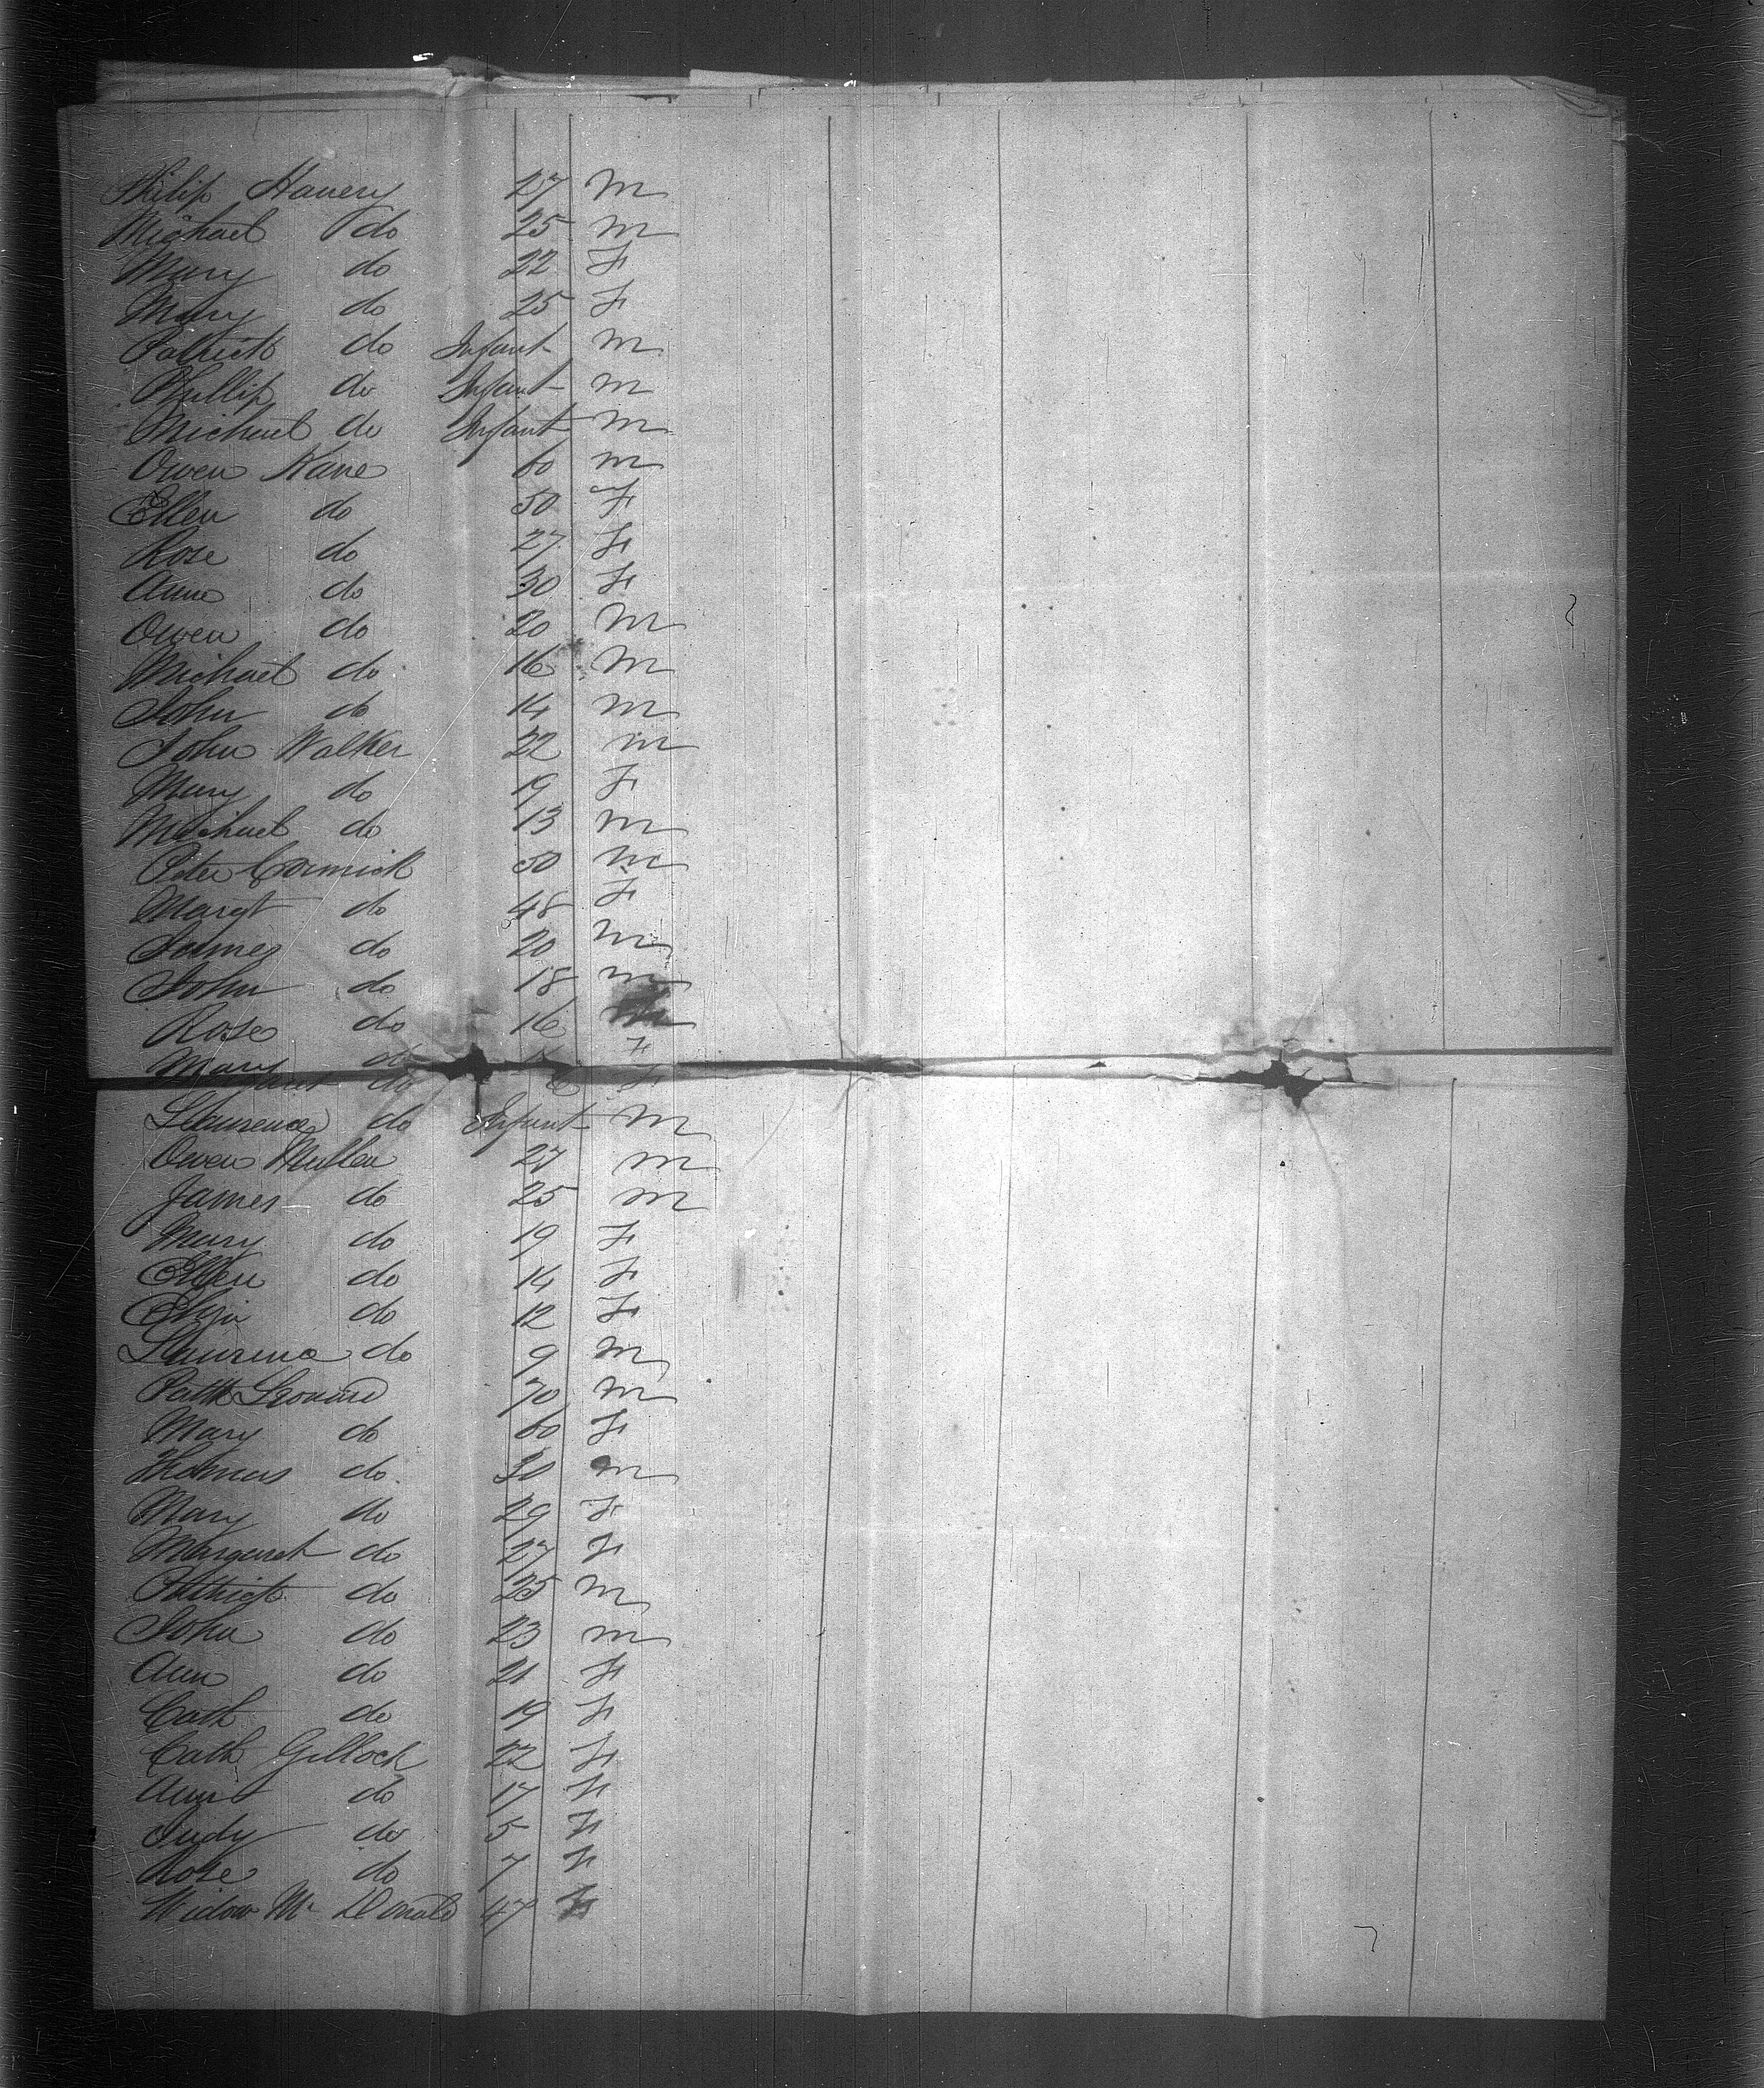 Philip Havery 27 m
Michael do 25 m
Mary do 22 F
Mary do 25 F
Patrick do Infant m
Phillip do Infant m
Michael do Infant m
Owen Kane 60 m
Ellen do 50 F
Rose do 27 F
Anne do 30 F
Owen do 20 m
Michael do 16 m
John do 14 m
John Walker 22 m
Mary do 19 F
Michael do 13 m
Peter Cormick 50 m
Margt do 48 F
James do 20 m
John do 18 m
Rose do 16
Mary do F
do F
Llaurence do Infant m
Owen Mullen 27 m
James do 25 m
Mary do 19 F
Ellen do 14 F
Eliza do 12 F
Llaurence do 9 m
Patk 70 m
Mary do 60 F
Thomas do 30 m
Mary do 29 F
Margaret do 27 F
Patrick do 25 m
John do 23 m
Ann do 21 F
Cath do 19 F
Cath Gillock 22 F
Ann do 17 F
Judy do 5 F
Rose do 7 F
Widow Mc Donald 47 F